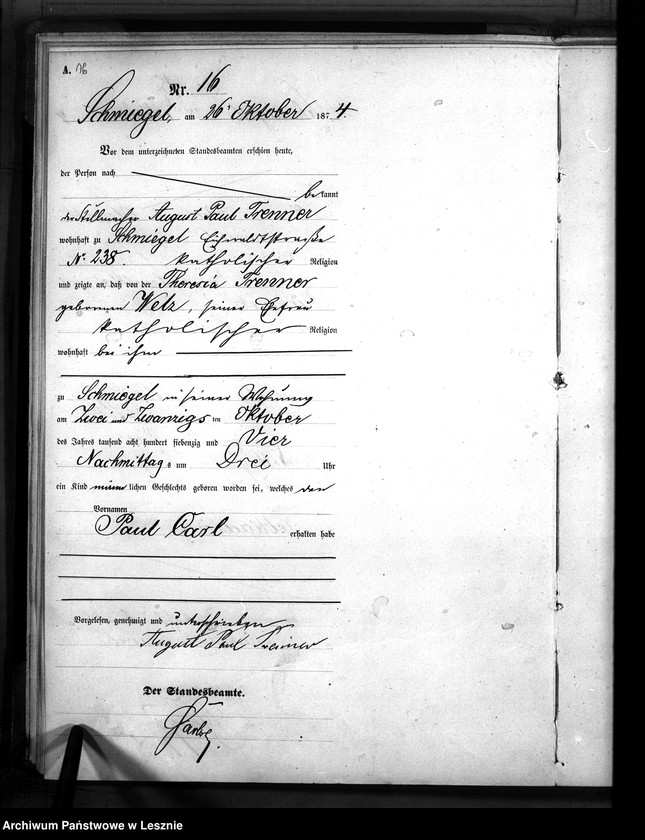 A. 16
Nr. 16
Schmiegel, am 26 Oktober 1874.
Vor dem unterzeichneten Standesbeamten erschien heute,
der Person nach
bekannt
der Stellmacher August Paul Trenner
wohnhaft zu Schmiegel
No 238. katholischer Religion
und zeigte an, daß von der Theresia Trenner
geborenen Welz, seiner Ehefrau
katholischer Religion
wohnhaft bei ihm
zu Schmiegel in seiner Wohnung
am Zwei und Zwanzigsten Oktober
des Jahres tausend acht hundert siebenzig und Vier
Nachmittags um Drei Uhr
ein Kind männlichen Geschlechts geboren worden sei, welches den
Vornamen
Paul Carl erhalten habe
Vorgelesen, genehmigt und unterschrieben
August Paul
Der Standesbeamte.
Archiwum Państwowe w Lesznie